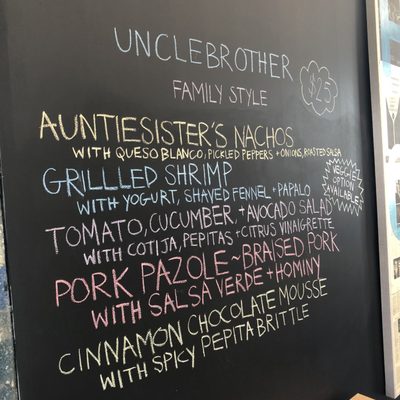 UNCLEBROTHER
$25
FAMILY STYLE
AUNTIESISTER'S NACHOS
WITH QUESO BLANCO, PICKLED PEPPERS + ONIONS, ROASTED SALSA
GRILLLED SHRIMP
WITH YOGURT, SHAVED FENNEL + PAPALO
VEGGIE
OPTION
AVAILABLE
TOMATO, CUCUMBER, + AVOCADO SALAD
WITH COTIJA, PEPITAS + CITRUS VINAIGRETTE
PORK PAZOLE ~ BRAISED PORK
WITH SALSA VERDE + HOMINY
CINNAMON CHOCOLATE MOUSSE
WITH SPICY PEPITA BRITTLE